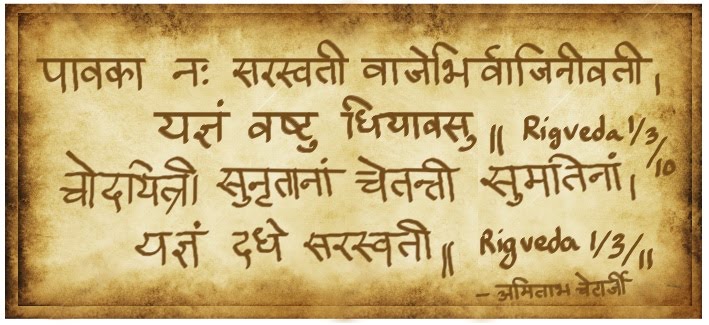 पावका नः सरस्वती वाजेभि र्वाजिनीवती।
यज्ञं वष्टु धियावसु॥ Rigveda 1/3/10
चोदयित्री सुनृतानां चेतन्ती सुमतिनां।
यज्ञं दधे सरस्वती॥ Rigveda 1/3/11
- अमिताभ चेटर्जी